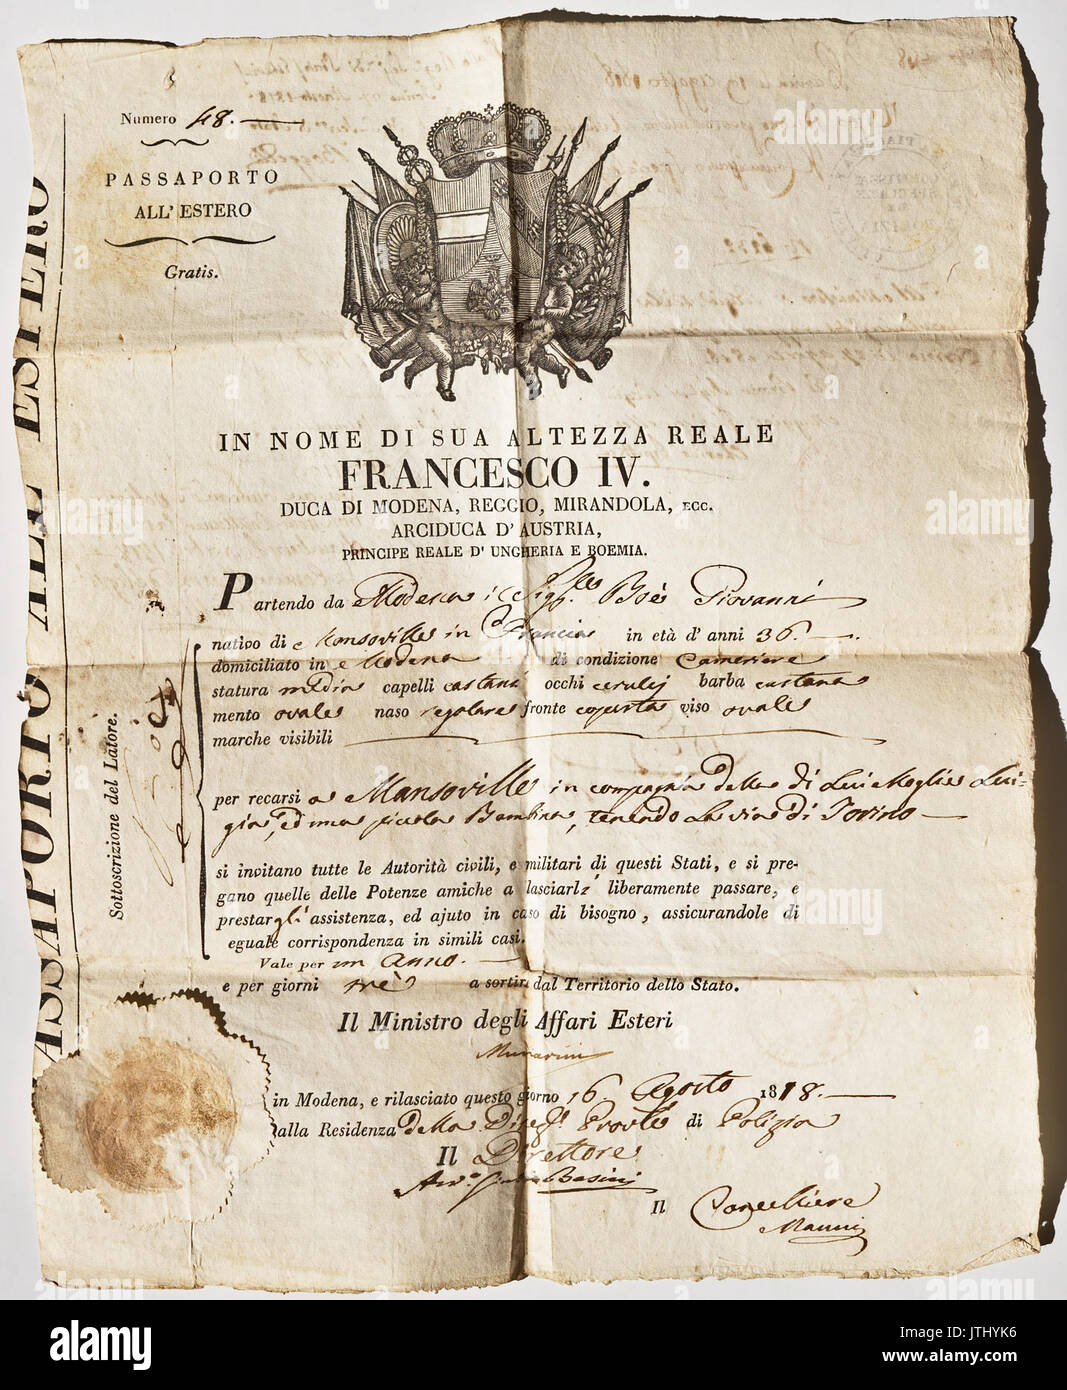 Numero 48.
PASSAPORTO
ALL' ESTERO
Gratis.
PASSAPORTO ALL' ESTERO
IN NOME DI SUA ALTEZZA REALE
FRANCESCO IV.
DUCA DI MODENA, REGGIO, MIRANDOLA, ECC.
ARCIDUCA D' AUSTRIA,
PRINCIPE REALE D' UNGHERIA E BOEMIA.
Partendo da Modena il Sig.r Boè Giovanni
nativo di Mansoville in Francia in età d' anni 36.
domiciliato in Modena di condizione Cameriere
statura media capelli castani occhi cerulei barba castana
mento ovale naso regolare fronte coperta viso ovale
marche visibili
Sottoscrizione del Latore.
per recarsi a Mansoville in compagnia della di Lui Moglie Lui-
gia, ed una piccola Bambina, tenendo la via di Torino
si invitano tutte le Autorità civili, e militari di questi Stati, e si pre-
gano quelle delle Potenze amiche a lasciarli liberamente passare, e
prestargli assistenza, ed ajuto in caso di bisogno, assicurandole di
eguale corrispondenza in simili casi.
Vale per un anno.
e per giorni trè a sortire dal Territorio dello Stato.
Il Ministro degli Affari Esteri
Munarini
in Modena, e rilasciato questo giorno 16 Agosto 1818.
alla Residenza della di Polizia
Il Direttore
Basini
Il Cancelliere
Manni
alamy
alamy stock photo
JTHYK6
www.alamy.com